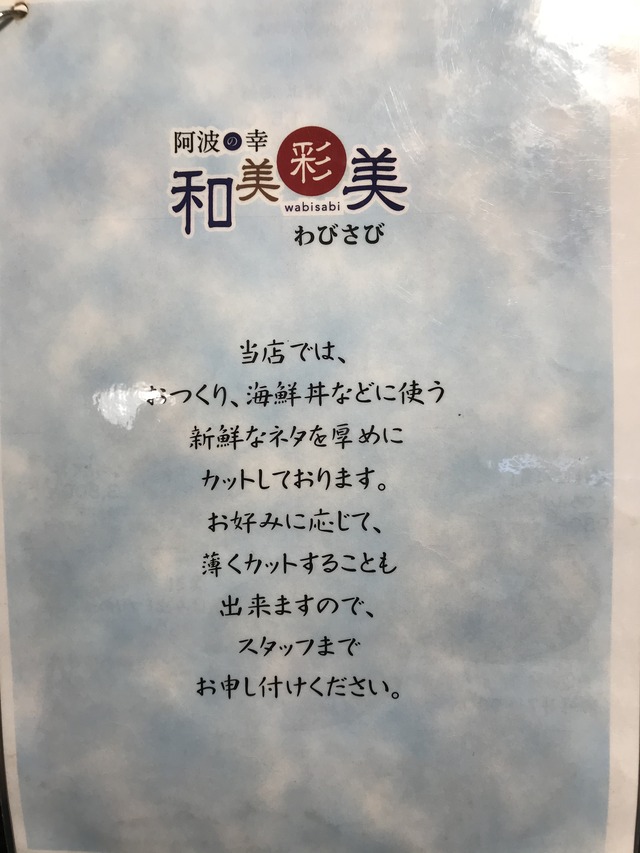 阿波の幸
和美彩美
wabisabi
わびさび
当店では、
おつくり、海鮮丼などに使う
新鮮なネタを厚めに
カットしております。
お好みに応じて、
薄くカットすることも
出来ますので、
スタッフまで
お申し付けください。